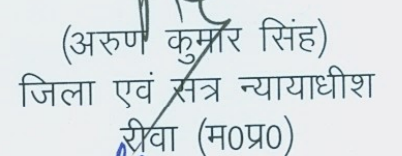 (अरुण कुमार सिंह)
जिला एवं सत्र न्यायाधीश
रीवा (म0प्र0)